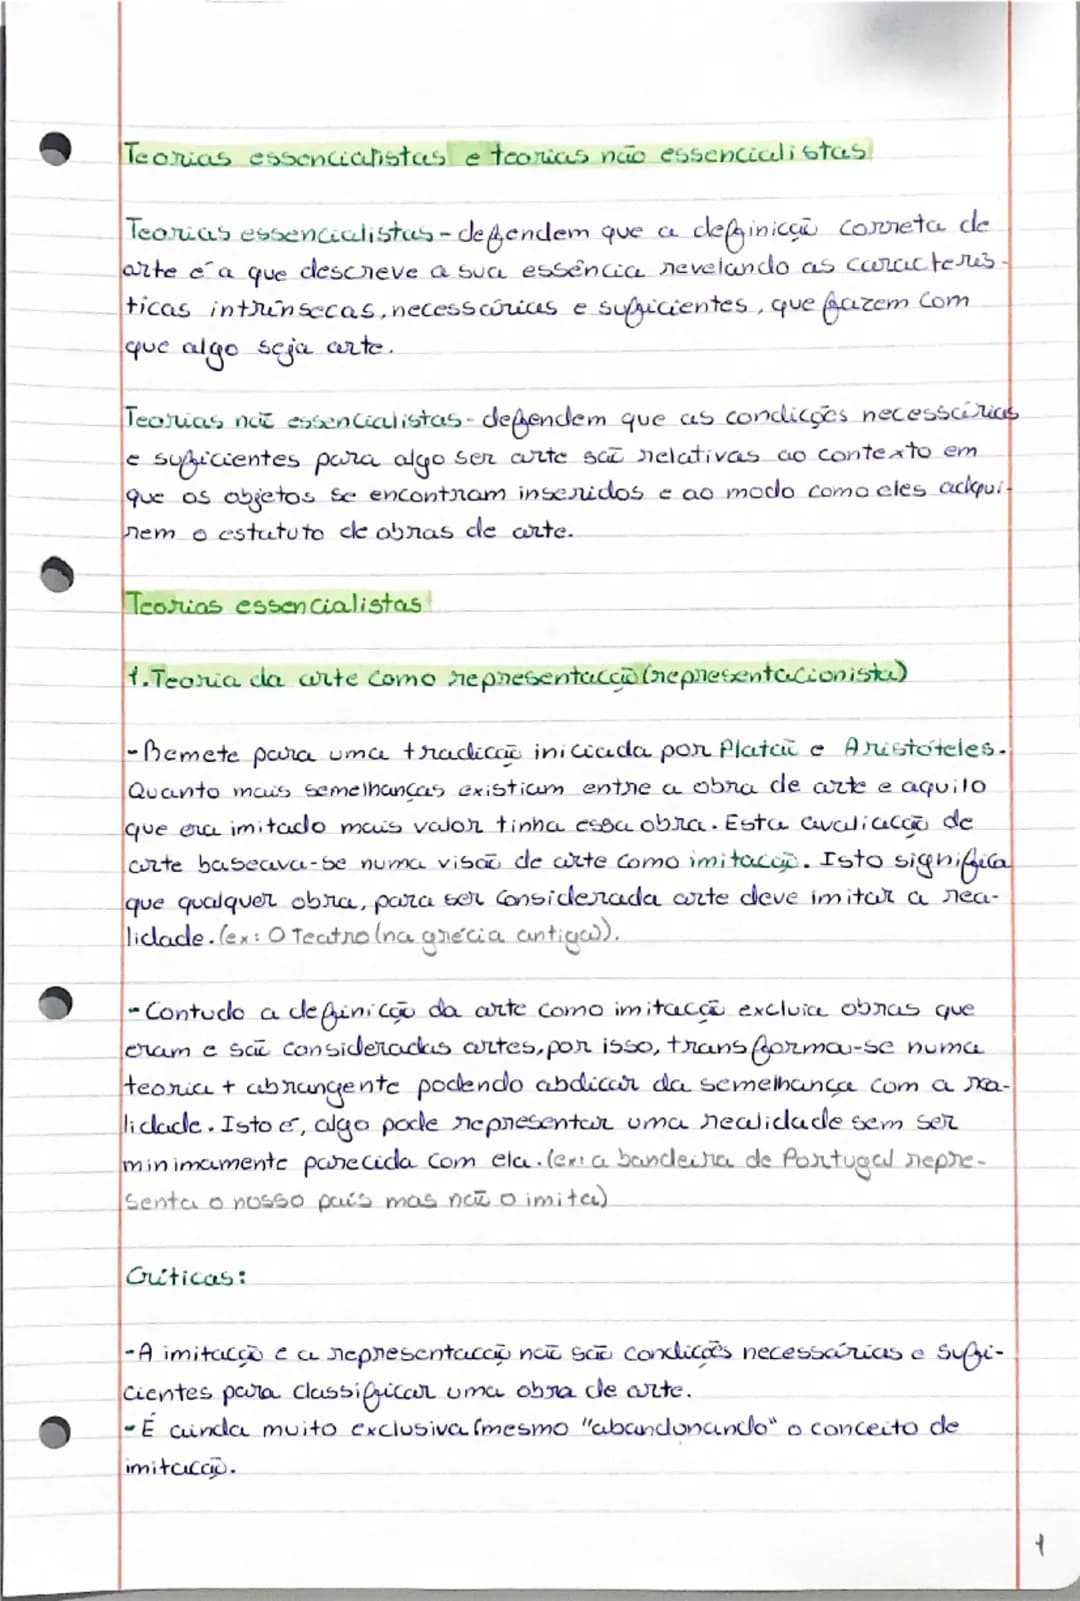 Teorias essencialistas e teorias não essencialistas
Teorias essencialistas - defendem que a definição correta de
arte é a que descreve a sua essência revelando as caracterís-
ticas intrínsecas, necessárias e suficientes, que fazem com
que algo seja arte.
Teorias não essencialistas - defendem que as condições necessárias
e suficientes para algo ser arte são relativas ao contexto em
que os objetos se encontram inseridos e ao modo como eles adqui-
rem o estatuto de obras de arte.
Teorias essencialistas
1. Teoria da arte como representação (representacionista)
- Remete para uma tradição iniciada por Platão e Aristóteles.
Quanto mais semelhanças existiam entre a obra de arte e aquilo
que era imitado mais valor tinha essa obra. Esta avaliação de
arte baseava-se numa visão de arte como imitação. Isto significa
que qualquer obra, para ser considerada arte deve imitar a rea-
lidade. (ex: O Teatro (na grécia antiga)).
- Contudo a definição da arte como imitação excluia obras que
eram e são consideradas artes, por isso, transforma-se numa
teoria + abrangente podendo abdicar da semelhança com a rea-
lidade. Isto é, algo pode representar uma realidade sem ser
minimamente parecida com ela. (ex: a bandeira de Portugal repre-
senta o nosso país mas não o imita)
Críticas:
- A imitação e a representação não são condições necessárias e sufi-
cientes para classificar uma obra de arte.
- É ainda muito exclusiva (mesmo "abandonando" o conceito de
imitação.
1